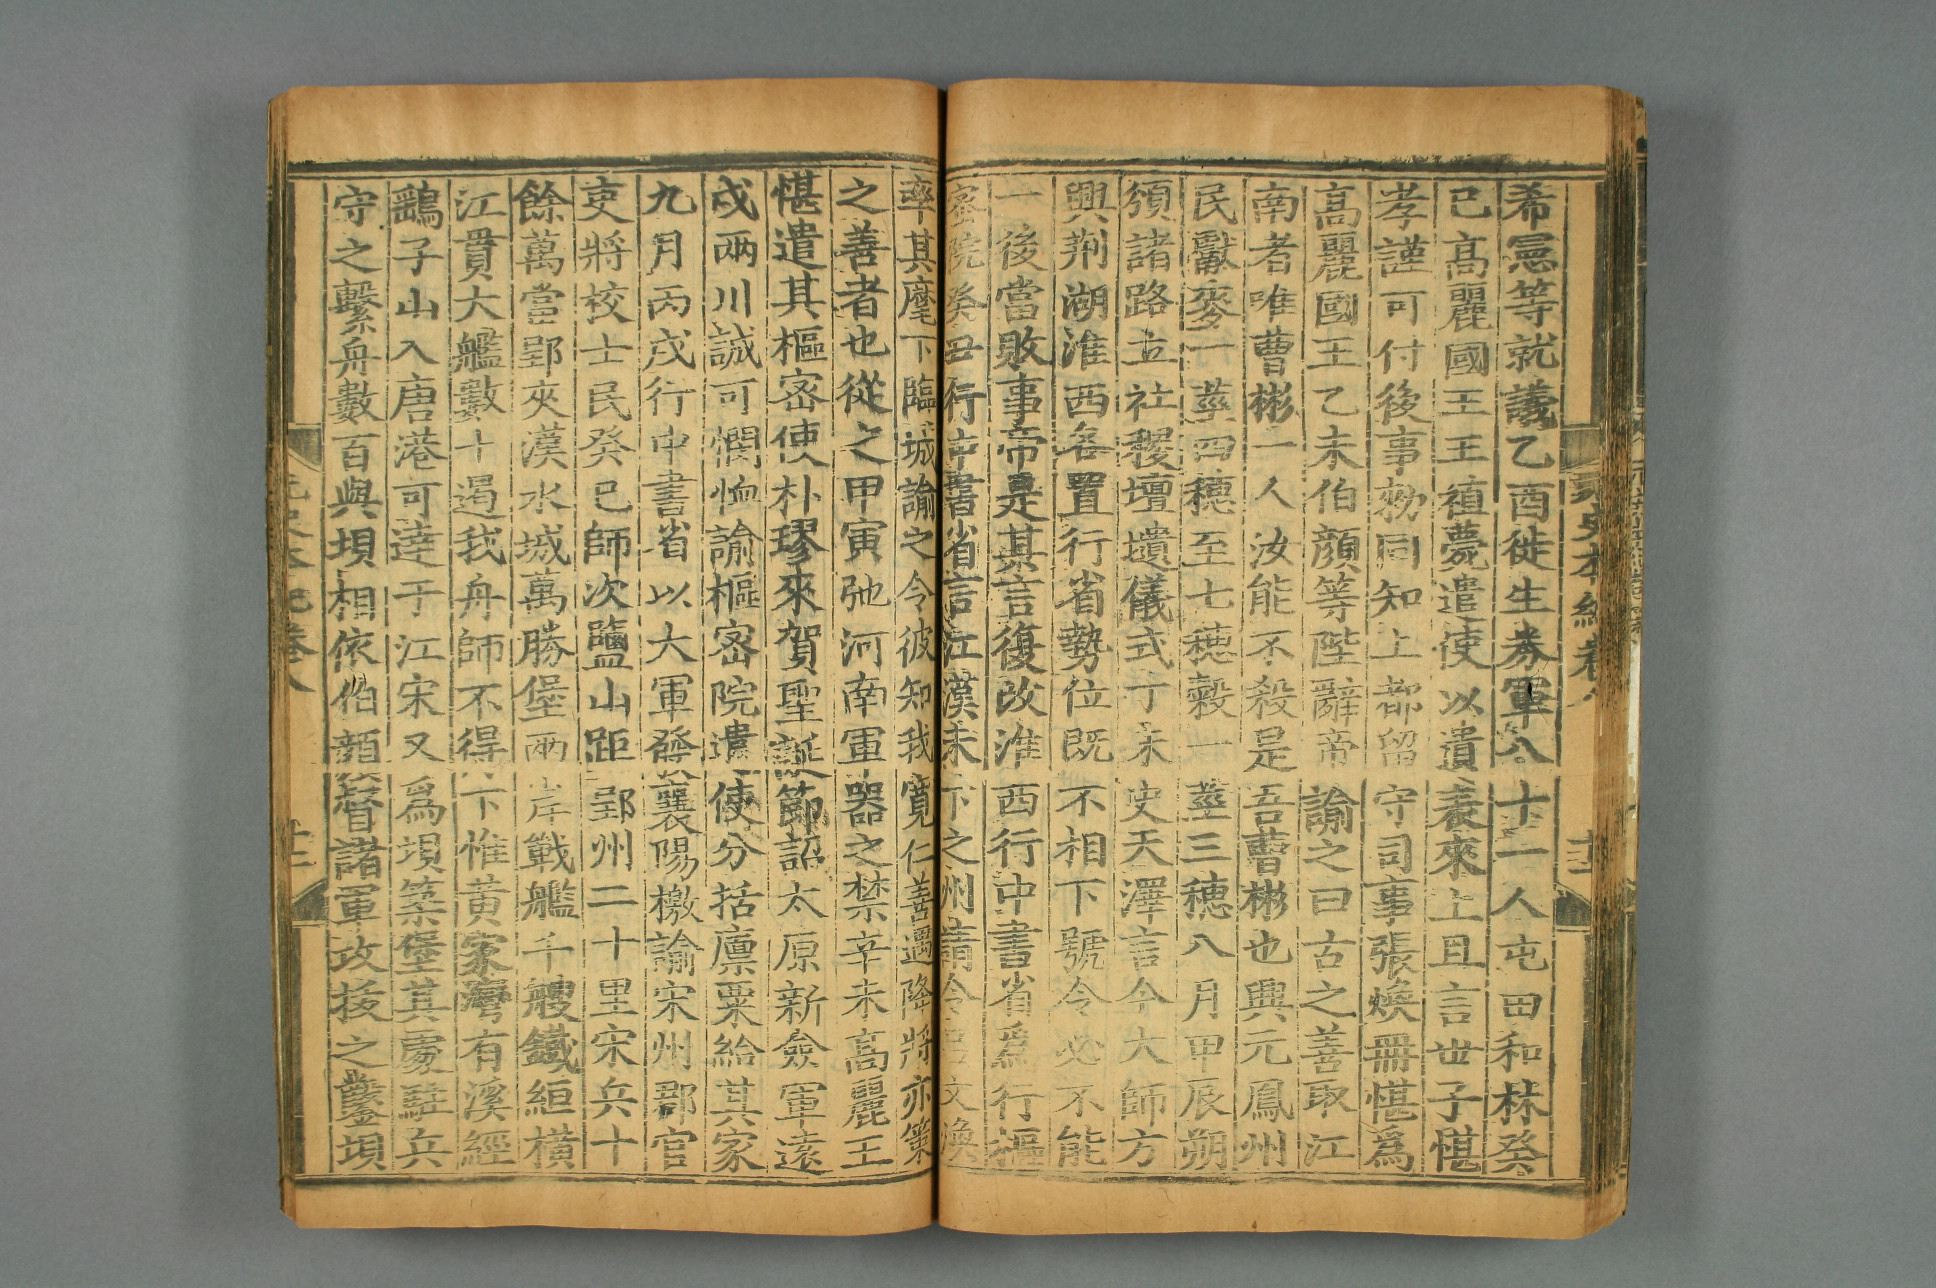 希憲等就議乙酉徙生券軍八十一人屯田和林癸
巳高麗國王王禃薨遣使以遺表來上且言世子愖
孝謹可付後事勑同知上都留守司事張煥冊愖爲
高麗國王乙未伯顔等陛辭帝諭之曰古之善取江
南者唯曹彬一人汝能不殺是吾曹彬也興元鳳州
民獻麥一莖四穗至七穗穀一莖三穗八月甲辰朔
頒諸路立社稷壇壝儀式丁未史天澤言今大師方
興荆湖淮西各置行省勢位既不相下號令必不能
一後當敗事帝是其言復改淮西行中書省爲行樞
密院癸丑行中書省言江漢未下之州請令呂文煥
率其麾下臨城諭之令彼知我寛仁善遇降將亦策
之善者也從之甲寅弛河南軍器之禁辛未高麗王
愖遣其樞密使朴璆來賀聖誕節詔太原新僉軍遠
戍兩川誠可憫恤諭樞密院遣使分括廪粟給其家
九月丙戌行中書省以大軍發襄陽檄諭宋州郡官
吏將校士民癸巳師次鹽山距郢州二十里宋兵十
餘萬當郢夾漢水城萬勝堡兩岸戰艦千艘鐡絙橫
江貫大艦數十遏我舟師不得下惟黄家灣有溪經
鷂子山入唐港可達于江宋又爲垻築堡其處駐兵
守之繫舟數百與垻相依伯顔督諸軍攻拔之鑿垻
元史本紀卷八
元史本紀卷八 十二